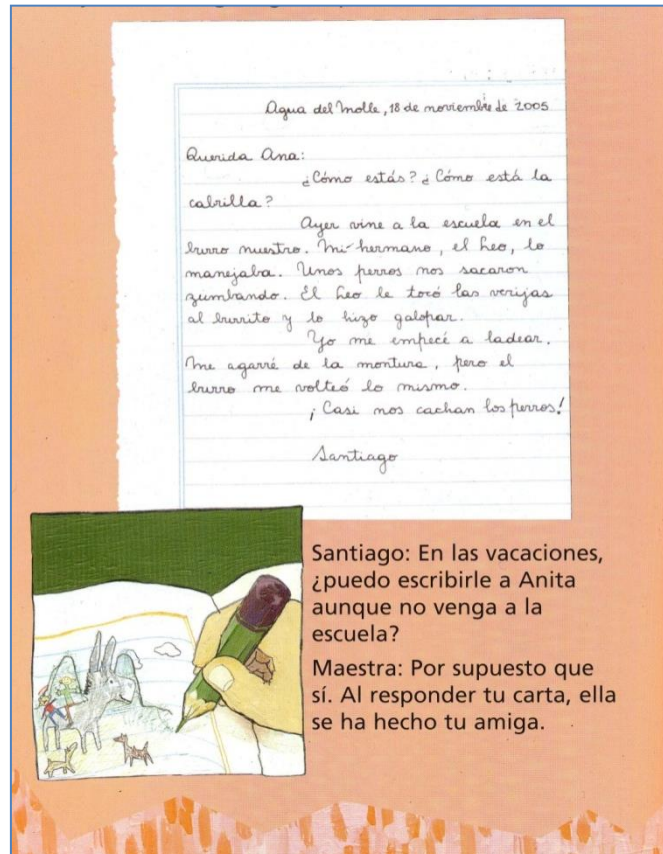 Agua del Molle, 18 de noviembre de 2005
Querida Ana:
¿Cómo estás? ¿Cómo está la
cabrilla?
Ayer vine a la escuela en el
burro nuestro. Mi hermano, el Leo, lo
manejaba. Unos perros nos sacaron
zumbando. El Leo le tocó las verijas
al burrito y lo hizo galopar.
Yo me empecé a ladear.
Me agarré de la montura, pero el
burro me volteó lo mismo.
¡Casi nos cachan los perros!
Santiago
Santiago: En las vacaciones,
¿puedo escribirle a Anita
aunque no venga a la
escuela?
Maestra: Por supuesto que
sí. Al responder tu carta, ella
se ha hecho tu amiga.